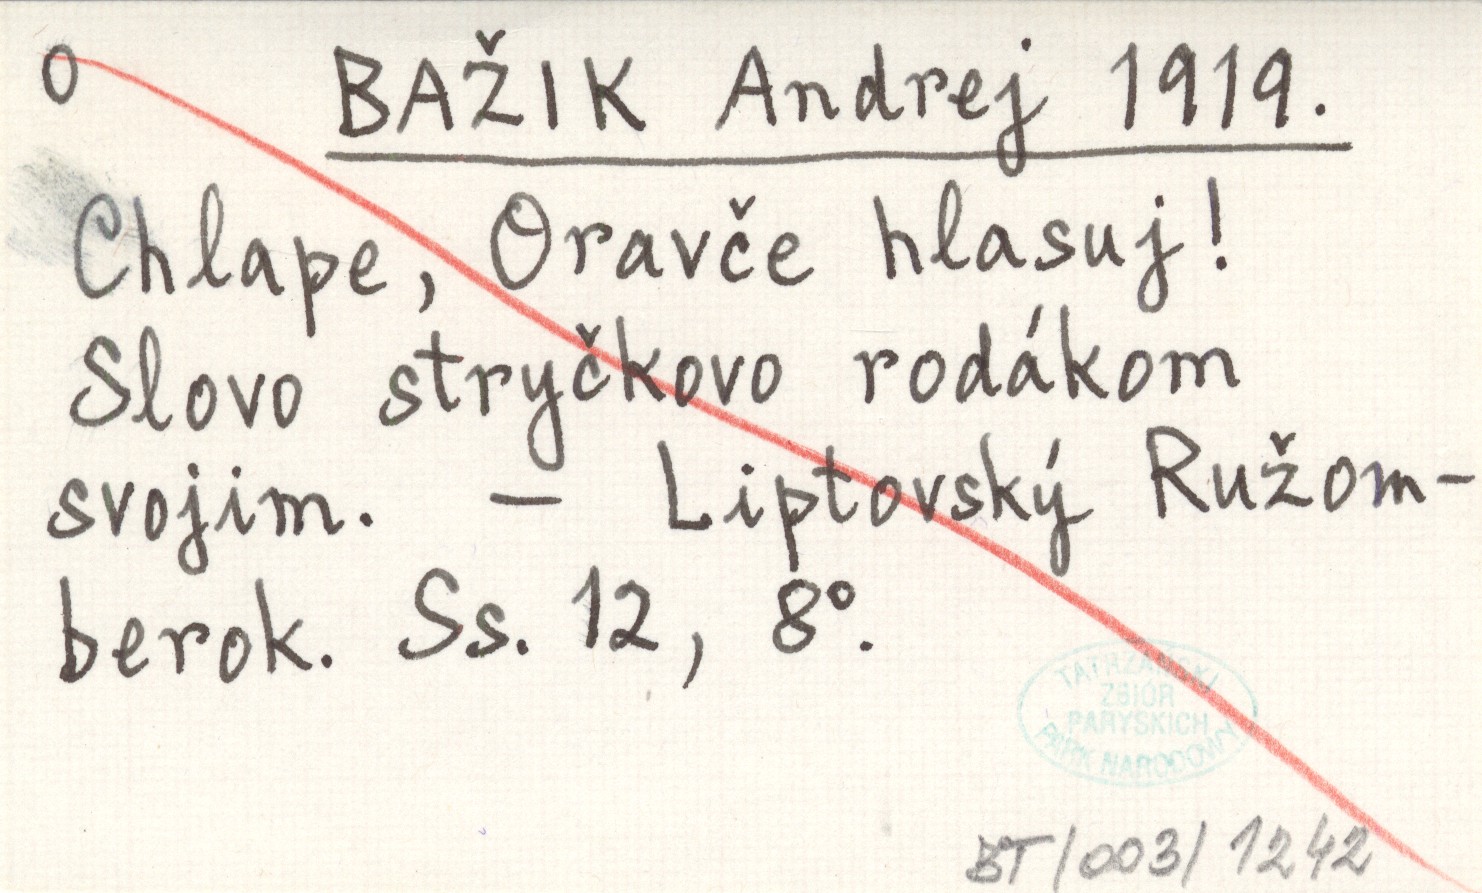 O
BAŽIK Andrej 1919.
Chlape, Oravče hlasuj!
Slovo stryčkovo rodákom
svojim. — Liptovský Ružom-
berok. Ss. 12, 8°.
TATRZAŃSKI
ZBIÓR
PARYSKICH
PARK NARODOWY
BT/003/1242